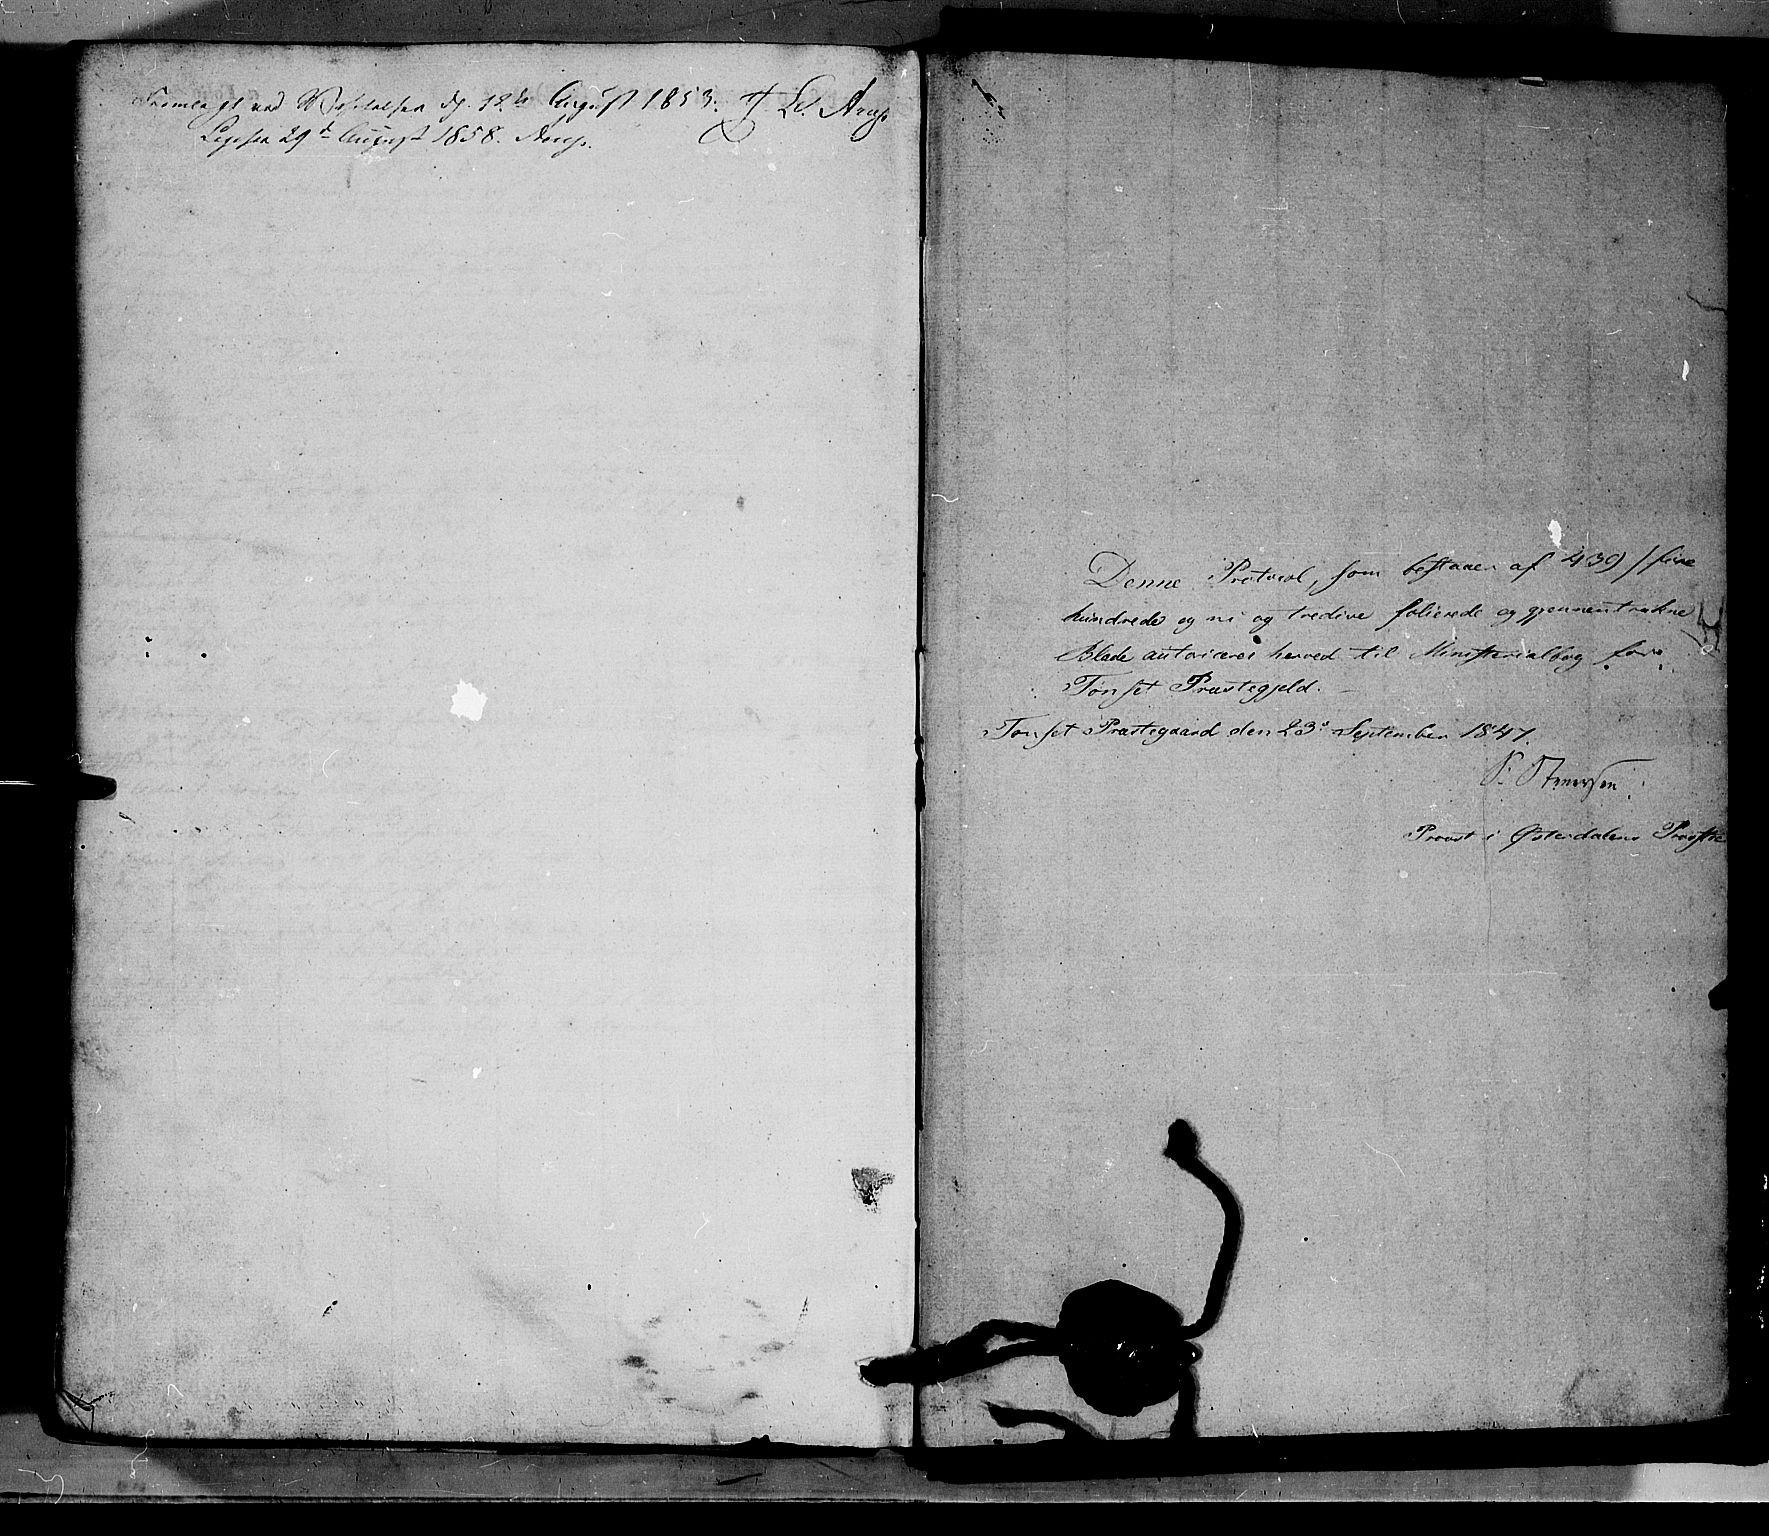 Fremlagt ved Visitatsen d. 12te August 1853. J. L. Arup
Ligesaa 29d August 1858. Arup.
Denne Protocol, som bestaaer af 439 / fire
hundrede og ni og tredive folierede og gjennemtrukne
Blade autoriceres herved til Ministerialbog for
Tønset Præstegjeld.
Tønset Præstegaard den 23d September 1847.
S. Stenersen
Provst i Østerdalens Provstie